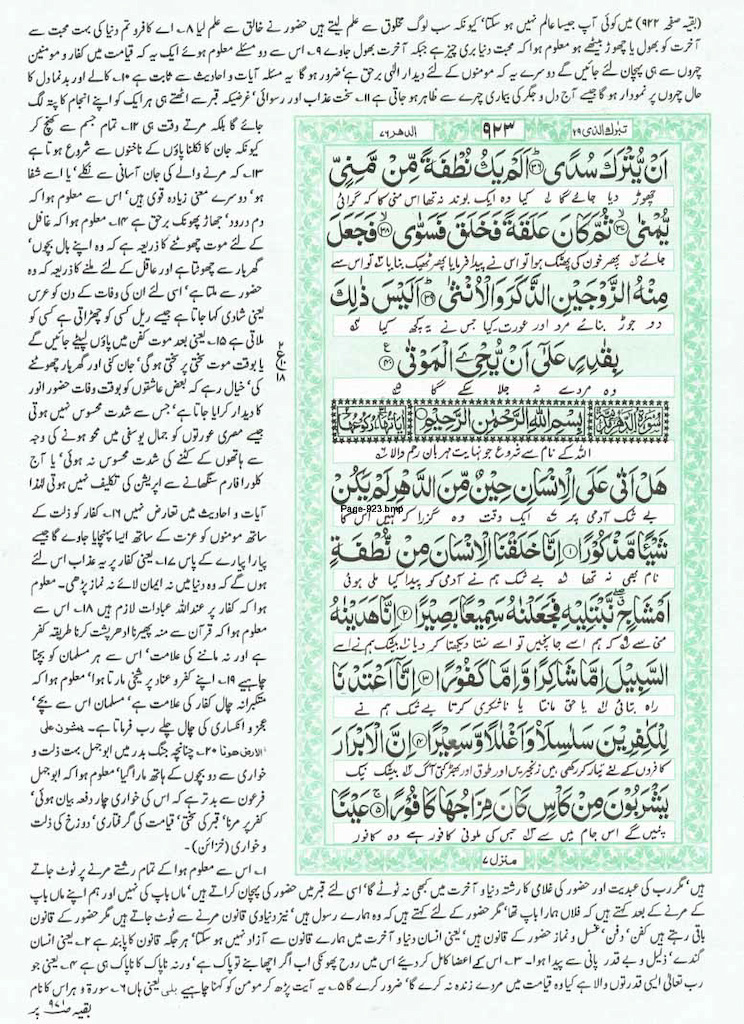 (بقیہ صفحہ ۹۲۲) میں کوئی آپ جیسا عالم نہیں ہو سکتا' کیونکہ سب لوگ مخلوق سے علم لیتے ہیں حضور نے خالق سے علم لیا ۸۔ اے کافرو تم دنیا کی بہت محبت سے
آخرت کو بھول یا چھوڑ بیٹھے ہو معلوم ہوا کہ محبت دنیا بری چیز ہے جبکہ آخرت بھول جاوے ۹۔ اس سے دو مسئلے معلوم ہوئے ایک یہ کہ قیامت میں کفار و مومنین
چہروں سے ہی پہچان لئے جائیں گے دوسرے یہ کہ مومنوں کے لئے دیدار الٰہی برحق ہے' ضرور ہو گا یہ مسئلہ آیات و احادیث سے ثابت ہے ۱۰۔ کالے اور بدنما دل کا
حال چہروں پر نمودار ہو گا جیسے آج دل و جگر کی بیماری چہرے سے ظاہر ہو جاتی ہے ۱۱۔ سخت عذاب اور رسوائی' غرضیکہ قبر سے اٹھتے ہی ہر ایک کو اپنے انجام کا پتہ لگ
جائے گا بلکہ مرتے وقت ہی ۱۲۔ تمام جسم سے کھینچ کر
کیونکہ جان کا نکلنا پاؤں کے ناخنوں سے شروع ہوتا ہے
۱۳۔ کہ مرنے والے کی جان آسانی سے نکلے' یا اسے شفا
ہو' دوسرے معنی زیادہ قوی ہیں' اس سے معلوم ہوا کہ
دم درود' جھاڑ پھونک برحق ہے ۱۴۔ معلوم ہوا کہ غافل
کے لئے موت چھوٹنے کا ذریعہ ہے کہ وہ اپنے بال بچوں'
گھر بار سے چھوٹتا ہے اور عاقل کے لئے ملنے کا ذریعہ کہ وہ
حضور سے ملتا ہے' اسی لئے ان کی وفات کے دن کو عرس
یعنی شادی کہا جاتا ہے جیسے ریل کسی کو چھڑاتی ہے کسی کو
ملاتی ہے ۱۵۔ یعنی بعد موت کفن میں پاؤں لپیٹے جائیں گے
یا بوقت موت سختی پر سختی ہو گی' جان کنی اور گھر بار چھوٹنے
کی' خیال رہے کہ بعض عاشقوں کو بوقت وفات حضور انور
کا دیدار کرایا جاتا ہے' جس سے شدت محسوس نہیں ہوتی
جیسے مصری عورتوں کو جمال یوسفی میں محو ہونے کی وجہ
سے ہاتھوں کے کٹنے کی شدت محسوس نہ ہوئی' یا آج
کلوروفارم سنگھانے سے اپریشن کی تکلیف نہیں ہوتی لہٰذا
آیات و احادیث میں تعارض نہیں ۱۶۔ کفار کو ذلت کے
ساتھ مومنوں کو عزت کے ساتھ ایسا پہنچایا جاوے گا جیسے
پیارا پیارے کے پاس ۱۷۔ یعنی کفار پر یہ عذاب اس لئے
ہوں گے کہ وہ دنیا میں نہ ایمان لائے نہ نماز پڑھی۔ معلوم
ہوا کہ کفار پر عنداللہ عبادات لازم ہیں ۱۸۔ اس سے
معلوم ہوا کہ قرآن سے منہ پھیرنا ادھر پشت کرنا طریقہ کفر
ہے اور نہ ماننے کی علامت' اس سے ہر مسلمان کو بچنا
چاہیے ۱۹۔ اپنے کفر و عناد پر شیخی مارتا ہوا' معلوم ہوا کہ
متکبرانہ چال کفار کی علامت ہے' مسلمان اس سے بچے'
عجز و انکساری کی چال چلے رب فرماتا ہے۔ یمشون علی
الارض ھونا ۲۰۔ چنانچہ جنگ بدر میں ابوجہل بہت ذلت و
خواری سے دو بچوں کے ہاتھ مارا گیا' معلوم ہوا کہ ابوجہل
فرعون سے بدتر ہے کہ اس کی خواری چار دفعہ بیان ہوئی'
کفر پر مرنا' قبر کی سختی' قیامت کی گرفتاری' دوزخ کی ذلت
و خواری (خزائن)۔
تبٰرک الذی ۲۹
۹۲۳
الدھر ۷۶
اَنْ يُّتْرَكَ سُدًى ﴿۳۶﴾ اَلَمْ يَكُ نُطْفَةً مِّنْ مَّنِيٍّ
چھوڑ دیا جائے گا کیا وہ ایک بوند نہ تھا اس منی کا کہ گرائی
يُّمْنٰى ﴿۳۷﴾ ثُمَّ كَانَ عَلَقَةً فَخَلَقَ فَسَوّٰى ﴿۳۸﴾ فَجَعَلَ
جائے پھر خون کی پھٹک ہوا تو اس نے پیدا فرمایا پھر ٹھیک بنایا تو اس سے
مِنْهُ الزَّوْجَيْنِ الذَّكَرَ وَالْاُنْثٰى ﴿۳۹﴾ اَلَيْسَ ذٰلِكَ
دو جوڑ بنائے مرد اور عورت کیا جس نے یہ کچھ کیا
بِقٰدِرٍ عَلٰٓى اَنْ يُّحْيِۦَ الْمَوْتٰى ﴿۴۰﴾
وہ مردے نہ جلا سکے گا
سورۃ الدھر بِسْمِ اللّٰهِ الرَّحْمٰنِ الرَّحِيْمِ
اللہ کے نام سے شروع جو نہایت مہربان رحم والا
هَلْ اَتٰى عَلَى الْاِنْسَانِ حِيْنٌ مِّنَ الدَّهْرِ لَمْ يَكُنْ
بے شک آدمی پر ایک وقت وہ گزرا کہ کہیں اس کا
Page-923.bmp
شَيْـًٔا مَّذْكُوْرًا ﴿۱﴾ اِنَّا خَلَقْنَا الْاِنْسَانَ مِنْ نُّطْفَةٍ
نام بھی نہ تھا بے شک ہم نے آدمی کو پیدا کیا ملی ہوئی
اَمْشَاجٍ نَّبْتَلِيْهِ فَجَعَلْنٰهُ سَمِيْعًۢا بَصِيْرًا ﴿۲﴾ اِنَّا هَدَيْنٰهُ
منی سے کہ ہم اسے جانچیں تو اسے سنتا دیکھتا کر دیا بیشک ہم نے اسے
السَّبِيْلَ اِمَّا شَاكِرًا وَّاِمَّا كَفُوْرًا ﴿۳﴾ اِنَّآ اَعْتَدْنَا
راہ بتائی یا حق مانتا یا ناشکری کرتا بے شک ہم نے
لِلْكٰفِرِيْنَ سَلٰسِلَا۟ وَاَغْلٰلًا وَّسَعِيْرًا ﴿۴﴾ اِنَّ الْاَبْرَارَ
کافروں کے لئے تیار کر رکھی ہیں زنجیریں اور طوق اور بھڑکتی آگ بیشک نیک
يَشْرَبُوْنَ مِنْ كَاْسٍ كَانَ مِزَاجُهَا كَافُوْرًا ﴿۵﴾ عَيْنًا
پئیں گے اس جام میں سے جس کی ملونی کافور ہے وہ کافور
منزل ۷
۱۔ اس سے معلوم ہوا کہ تمام رشتے مرنے پر ٹوٹ جاتے
ہیں' مگر رب کی عبدیت اور حضور کی غلامی کا رشتہ دنیا و آخرت میں کبھی نہ ٹوٹے گا' اسی لئے قبر میں حضور کی پہچان کراتے ہیں' ماں باپ کی نہیں اور ہم اپنے ماں باپ
کے مرنے کے بعد کہتے ہیں کہ فلاں ہمارا باپ تھا' مگر حضور کے لئے کہتے ہیں کہ وہ ہمارے رسول ہیں' نیز دنیاوی قانون مرنے سے ٹوٹ جاتے ہیں مگر حضور کے قانون
باقی رہتے ہیں کفن' دفن' غسل و نماز حضور کے قانون ہیں' یعنی انسان دنیا و آخرت میں ہمارے قانون سے آزاد نہیں ہو سکتا' ہر جگہ قانون کا پابند ہے ۲۔ یعنی انسان
گندے' ذلیل و بے قدر پانی سے پیدا ہوا۔ ۳۔ اس کے اعضا کامل کر دیئے اس میں روح پھونکی اب اگر اچھا بنے تو پاک ہے' ورنہ ناپاک کا ناپاک ہی ہے ۴۔ یعنی جو
رب تعالٰی ایسی قدرتوں والا ہے کیا وہ قیامت میں مردے زندہ نہ کرے گا' ضرور کرے گا ۵۔ یہ آیت پڑھ کر مومن کو کہنا چاہیے بلی یعنی ہاں ۶۔ سورۃ دہر اس کا نام
بقیہ صـ ۹۷۱ پر